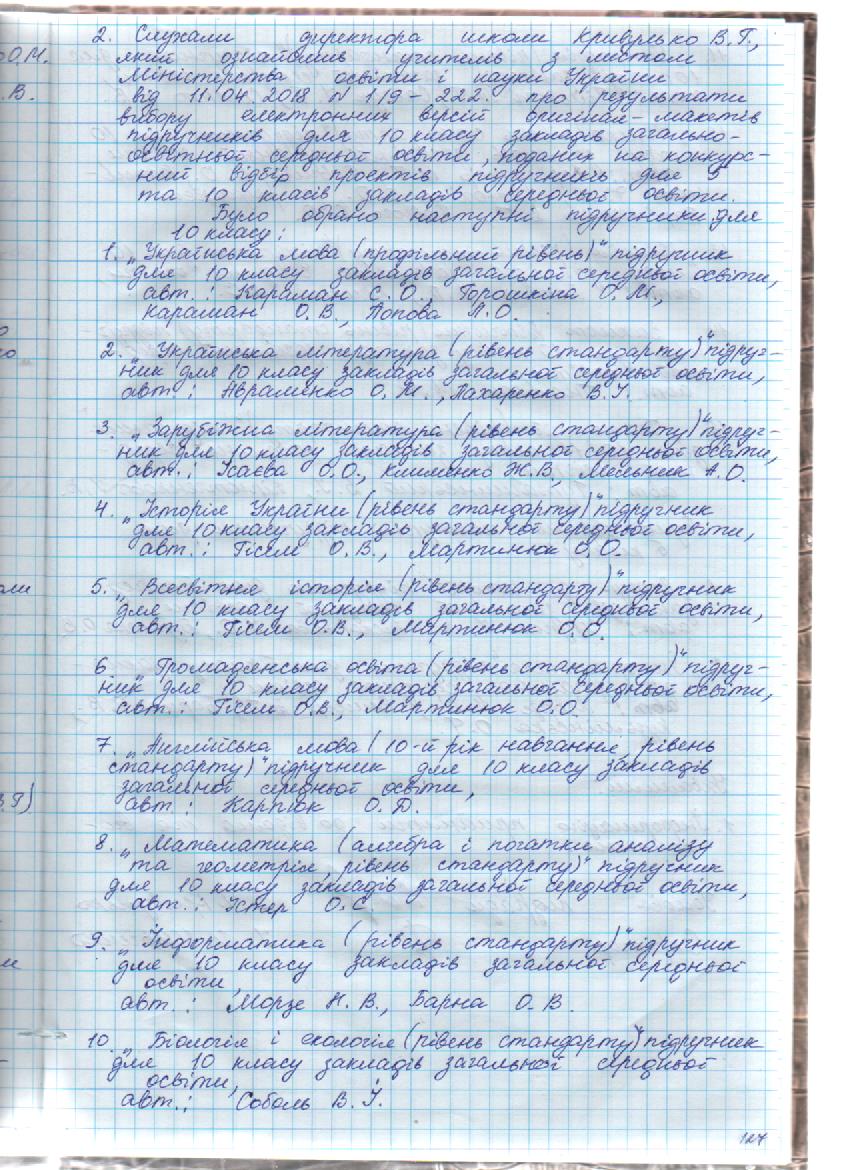 2. Слухали директора школи Кривулько В.Г.,
який ознайомив учителів з листом
Міністерства освіти і науки України
від 11.04.2018 № 1/9-222. про результати
вибору електронних версій оригінал-макетів
підручників для 10 класу закладів загально-
освітньої середньої освіти, поданих на конкурс-
ний відбір проєктів підручників для 5
та 10 класів закладів середньої освіти.
Було обрано наступні підручники для
10 класу:
1. „Українська мова (профільний рівень)“ підручник
для 10 класу закладів загальної середньої освіти,
авт.: Караман С.О., Горошкіна О.М.,
Караман О.В., Попова Л.О.
2. „Українська література (рівень стандарту)“ підруч-
ник для 10 класу закладів загальної середньої освіти,
авт.: Авраменко О.М., Пахаренко В.І.
3. „Зарубіжна література (рівень стандарту)“ підруч-
ник для 10 класу закладів загальної середньої освіти,
авт.: Ісаєва О.О., Клименко Ж.В, Мельник А.О.
4. „Історія України (рівень стандарту)“ підручник
для 10 класу закладів загальної середньої освіти,
авт.: Гісем О.В., Мартинюк О.О.
5. „Всесвітня історія (рівень стандарту)“ підручник
для 10 класу закладів загальної середньої освіти,
авт.: Гісем О.В., Мартинюк О.О.
6. „Громадянська освіта (рівень стандарту)“ підруч-
ник для 10 класу закладів загальної середньої освіти,
авт.: Гісем О.В., Мартинюк О.О.
7. „Англійська мова (10-й рік навчання, рівень
стандарту)“ підручник для 10 класу закладів
загальної середньої освіти,
авт.: Карпюк О.Д.
8. „Математика (алгебра і початки аналізу
та геометрія, рівень стандарту)“ підручник
для 10 класу закладів загальної середньої освіти,
авт.: Істер О.С.
9. „Інформатика (рівень стандарту)“ підручник
для 10 класу закладів загальної середньої
освіти,
авт.: Морзе Н.В., Барна О.В.
10. „Біологія і екологія (рівень стандарту)“ підручник
для 10 класу закладів загальної середньої
освіти,
авт.: Соболь В.І.
127